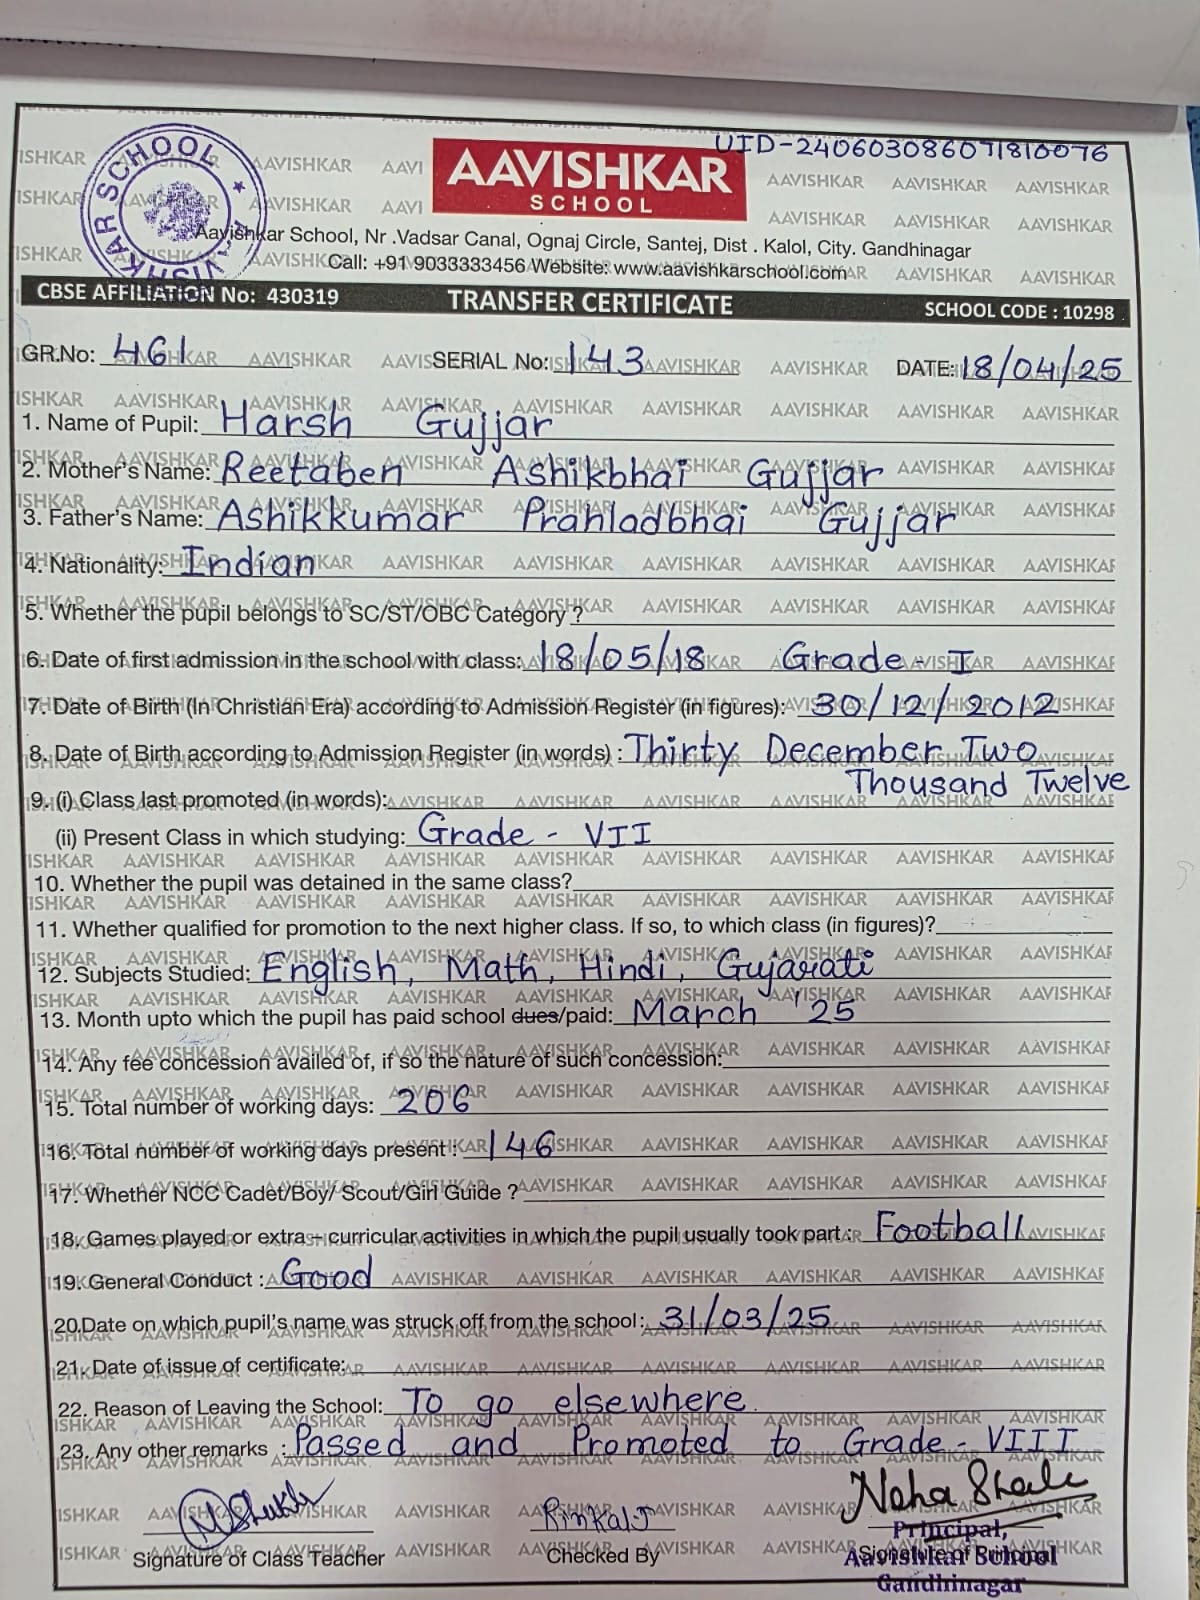 UID-240603086071810076
AAVISHKAR SCHOOL
AAVISHKAR
SCHOOL
Aavishkar School, Nr .Vadsar Canal, Ognaj Circle, Santej, Dist . Kalol, City. Gandhinagar
Call: +91 9033333456 Website: www.aavishkarschool.com
CBSE AFFILIATION No: 430319 TRANSFER CERTIFICATE SCHOOL CODE : 10298
GR.No: 461 SERIAL No: 143 DATE: 18/04/25
1. Name of Pupil: Harsh Gujjar
2. Mother's Name: Reetaben Ashikbhai Gujjar
3. Father's Name: Ashikkumar Prahladbhai Gujjar
4. Nationality: Indian
5. Whether the pupil belongs to SC/ST/OBC Category ?
6. Date of first admission in the school with class: 18/05/18 Grade - I
7. Date of Birth (In Christian Era) according to Admission Register (in figures): 30/12/2012
8. Date of Birth according to Admission Register (in words) : Thirty December Two
Thousand Twelve
9. (i) Class last promoted (in words):
(ii) Present Class in which studying: Grade - VII
10. Whether the pupil was detained in the same class?
11. Whether qualified for promotion to the next higher class. If so, to which class (in figures)?
12. Subjects Studied: English, Math, Hindi, Gujarati
13. Month upto which the pupil has paid school dues/paid: March '25
14. Any fee concession availed of, if so the nature of such concession:
15. Total number of working days: 206
16. Total number of working days present : 146
17. Whether NCC Cadet/Boy/ Scout/Girl Guide ?
18. Games played or extra – curricular activities in which the pupil usually took part : Football
19. General Conduct : Good
20.Date on which pupil's name was struck off from the school: 31/03/25
21. Date of issue of certificate:
22. Reason of Leaving the School: To go elsewhere
23. Any other remarks : Passed and Promoted to Grade - VIII
Neha
Signature of Class Teacher Checked By Signature of Principal
Principal,
Aavishkar School
Gandhinagar